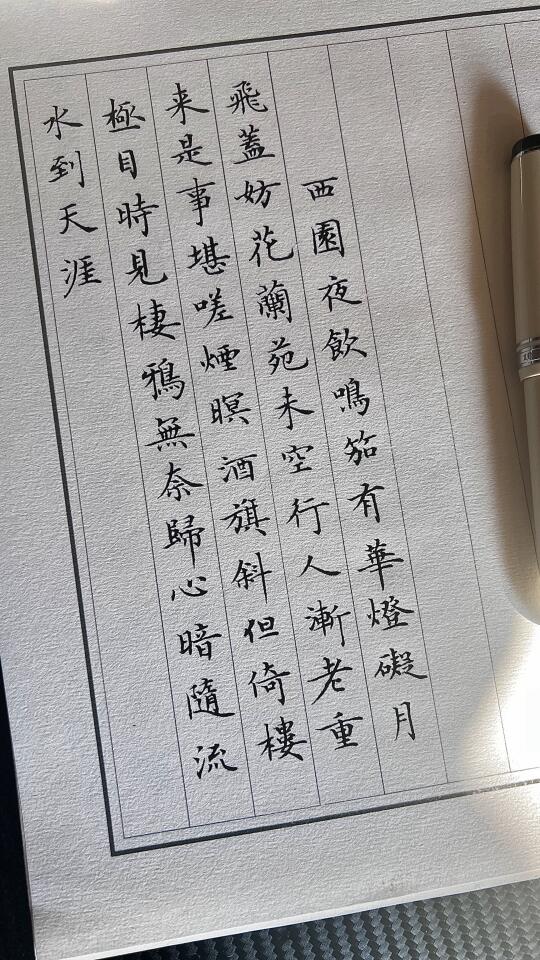 西園夜飲鳴笳有華燈礙月
飛蓋妨花蘭苑未空行人漸老重
来是事堪嗟煙暝酒旗斜但倚樓
極目時見棲鴉無奈歸心暗隨流
水到天涯